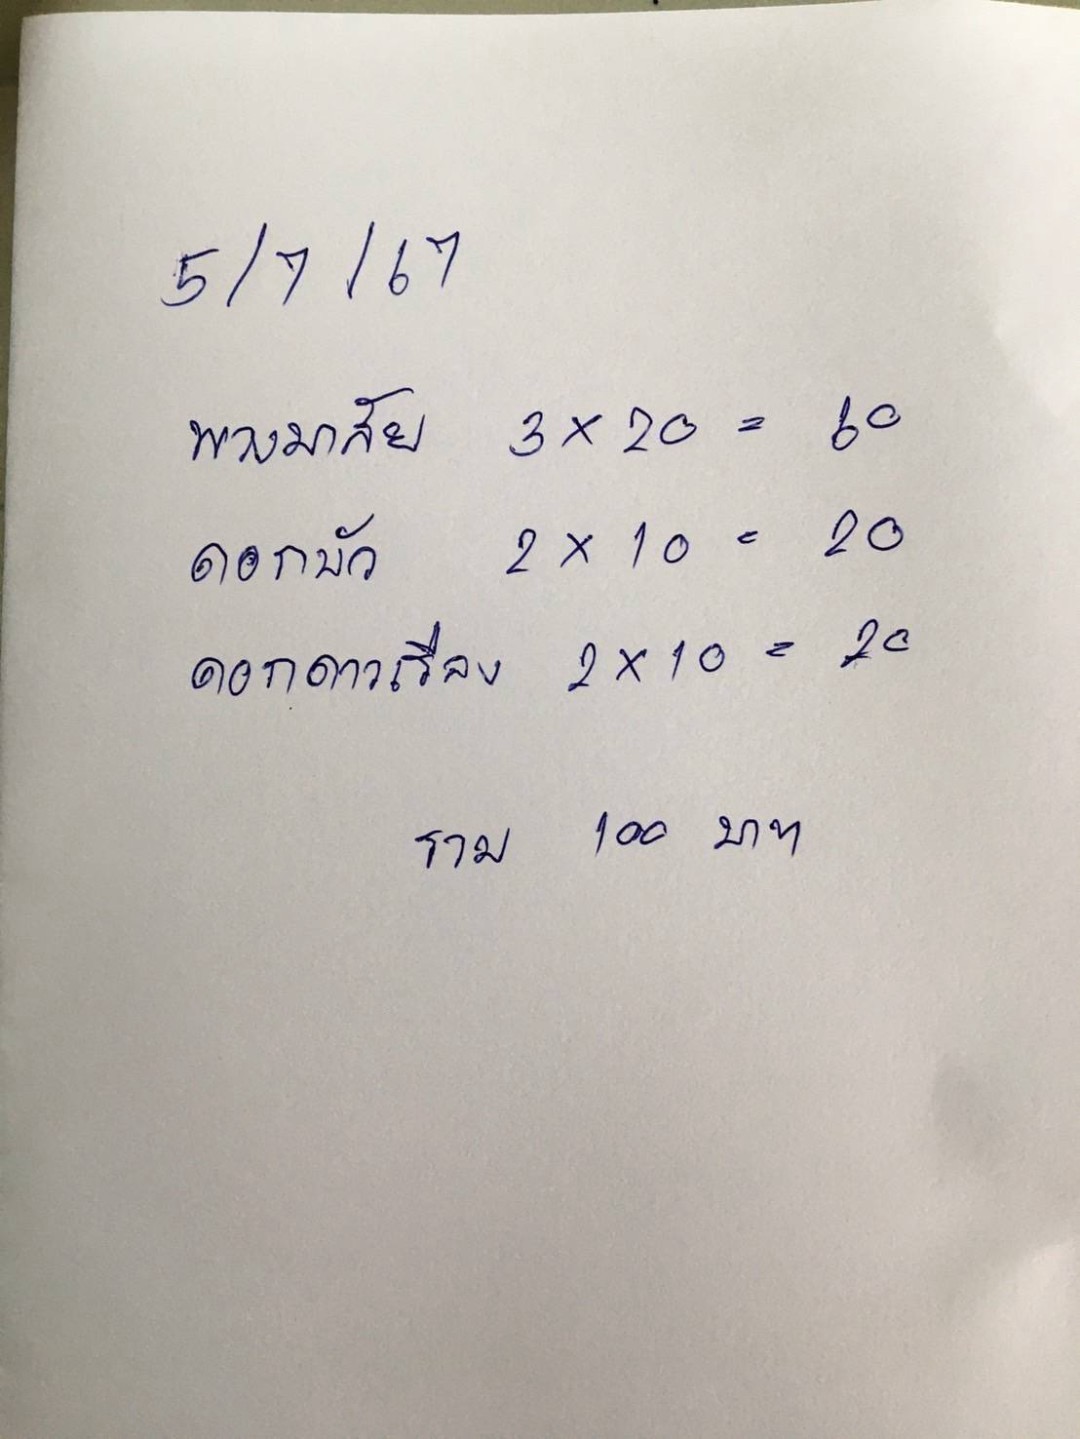 5/7/67
พวงมาลัย 3 × 20 = 60
ดอกบัว 2 × 10 = 20
ดอกดาวเรือง 2 × 10 = 20
รวม 100 บาท